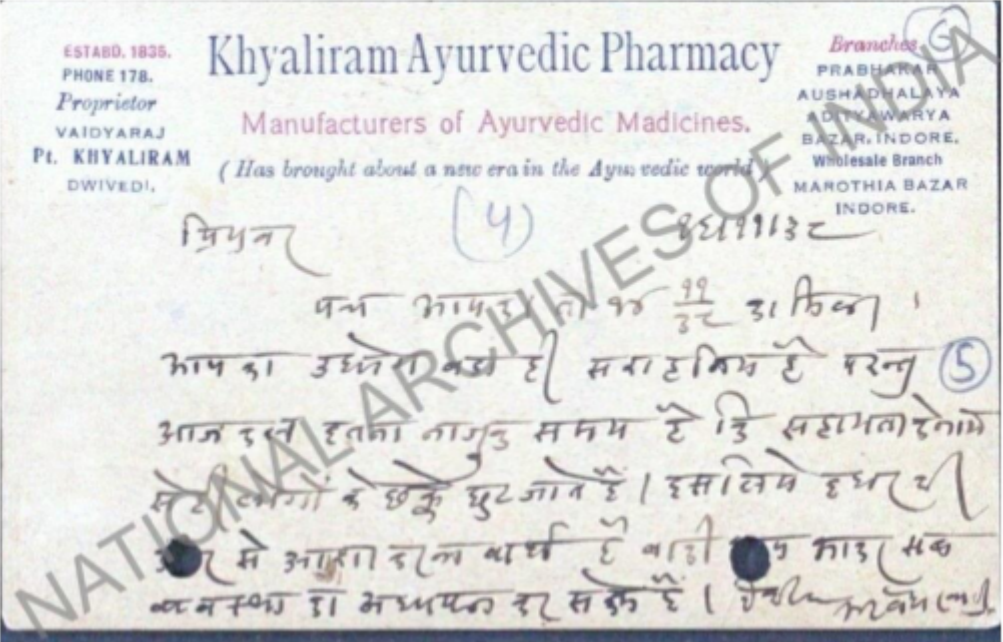 ESTABD. 1835.
PHONE 178.
Proprietor
VAIDYARAJ
Pt. KHYALIRAM
DWIVEDI.
Khyaliram Ayurvedic Pharmacy
Manufacturers of Ayurvedic Madicines.
(Has brought about a new era in the Ayurvedic world)
6
Branches.
PRABHAKAR
AUSHADHALAYA
ADITYAWARYA
BAZAR, INDORE.
Wholesale Branch
MAROTHIA BAZAR
INDORE.
(५)
प्रियवर
पत्र आपका ता ११/३८ का मिला ।
आपका उद्योग बडा ही सराहनिय है परन्तु
5
आज कल इतना नाजुक समय है कि सहायता देना
लोगों के छक्के छुट जाते हैं । इसलिये इधर की
से आशा करना व्यर्थ है बाकी
व्यवस्था का हैं ।
NATIONAL ARCHIVES OF INDIA